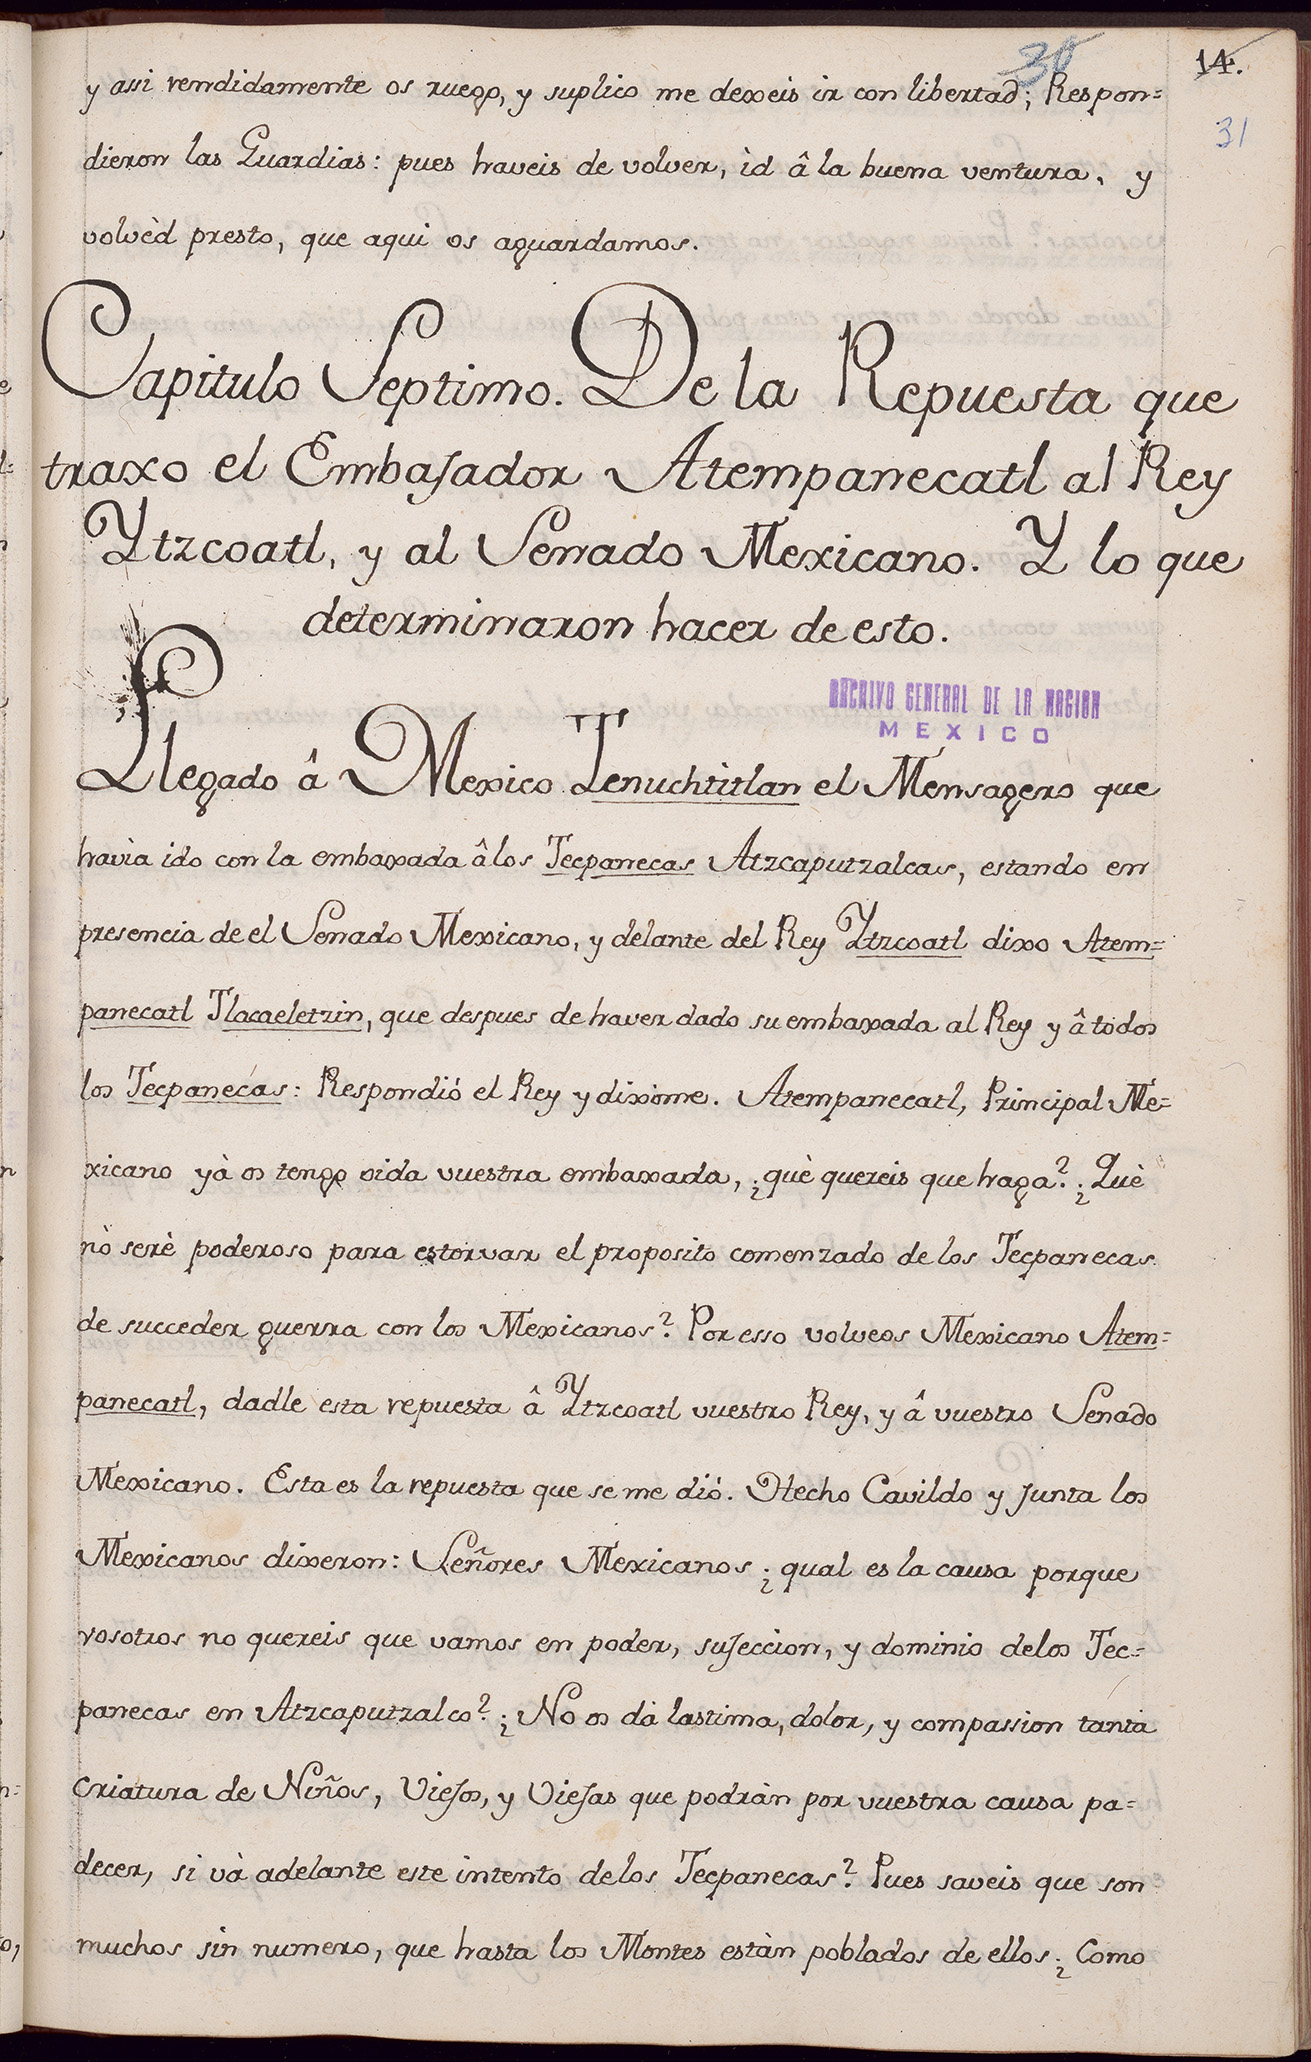 30
14.
31
y assi rendidamente os ruego, y suplico me dexeis ir con libertad; Respon=
dieron las Guardias: pues haveis de volver, ìd â la buena ventura, y
volvèd presto, que aqui os aguardamos.
Capitulo Septimo. De la Repuesta que
traxo el Embajador Atempanecatl al Rey
Ytzcoatl, y al Senado Mexicano. Y lo que
determinaron hacer de esto.
ARCHIVO GENERAL DE LA NACION
MEXICO
Llegado â Mexico Tenuchtitlan el Mensagero que
havia ido con la embaxada â los Tecpanecas Atzcaputzalcas, estando en
presencia de el Senado Mexicano, y delante del Rey Ytzcoatl dixo Atem=
panecatl Tlacaeletzin, que despues de haver dado su embaxada al Rey y â todos
los Tecpanecas: Respondió el Rey y dixome. Atempanecatl, Principal Me=
xicano yà os tengo oida vuestra embaxada, ¿què quereis que haga? ¿Què
nò serè poderoso para estorvar el proposito comenzado de los Tecpanecas
de succeder guerra con los Mexicanos? Por esso volveos Mexicano Atem=
panecatl, dadle esta repuesta â Ytzcoatl vuestro Rey, y â vuestro Senado
Mexicano. Esta es la repuesta que se me dió. Hecho Cavildo y junta los
Mexicanos dixeron: Señores Mexicanos ¿qual es la causa porque
vosotros no quereis que vamos en poder, sujeccion, y dominio de los Tec=
panecas en Atzcaputzalco? ¿No os dà lastima, dolor, y compassion tanta
criatura de Niños, Viejos, y Viejas que podràn por vuestra causa pa=
decer, si và adelante este intento de los Tecpanecas? Pues saveis que son
muchos sin numero, que hasta los Montes estàn poblados de ellos ¿Como